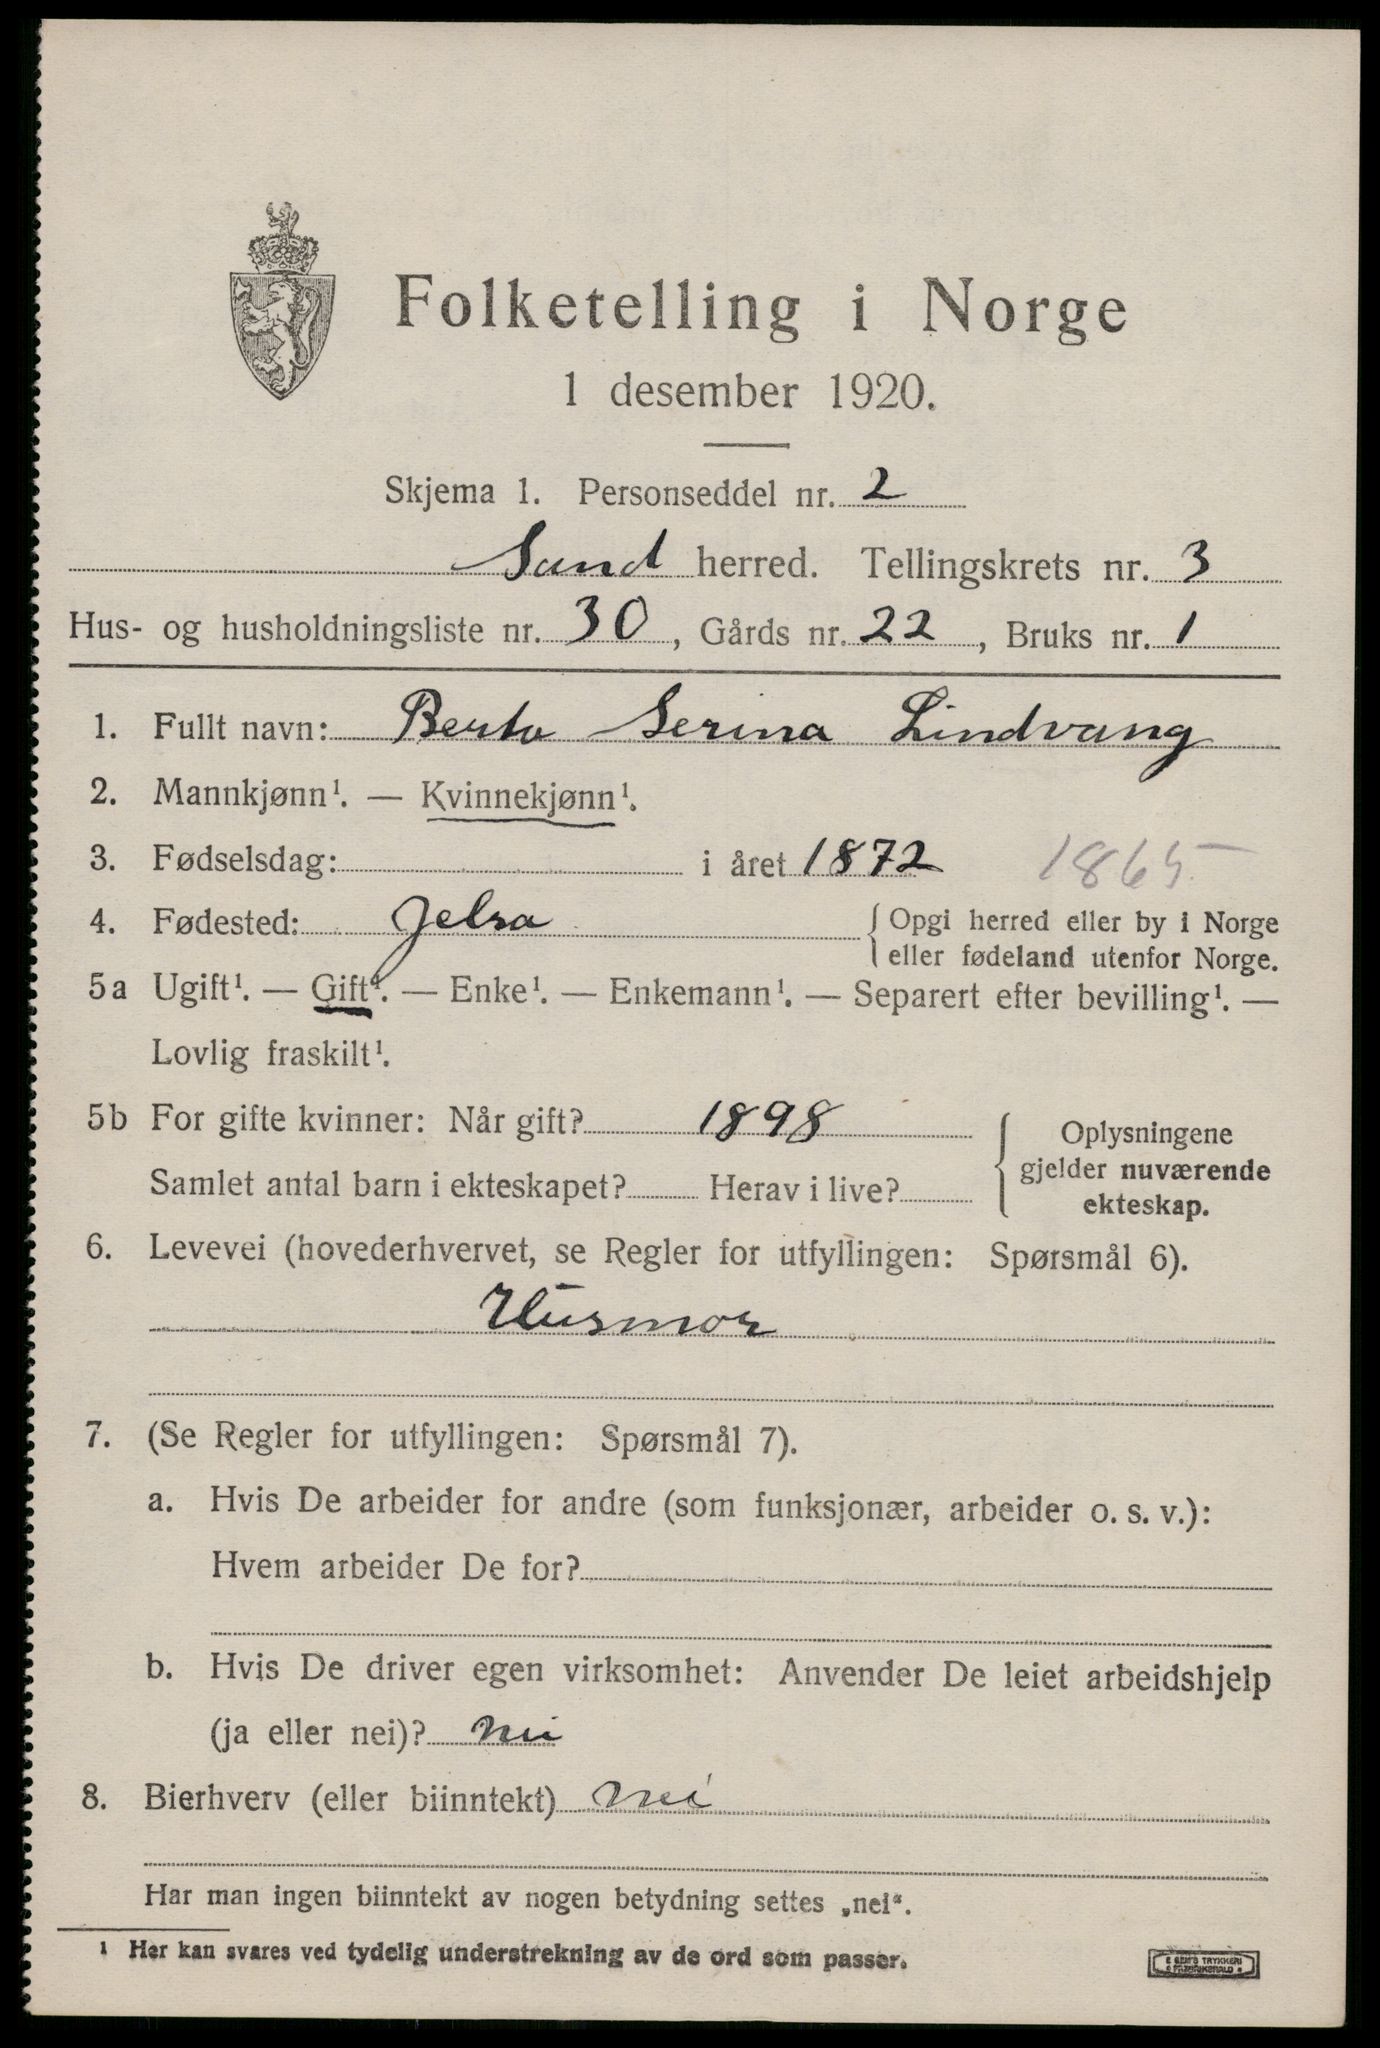 Folketelling i Norge
1 desember 1920.
Skjema 1. Personseddel nr. 2
Sand herred. Tellingskrets nr. 3
Hus- og husholdningsliste nr. 30, Gårds nr. 22, Bruks nr. 1
1. Fullt navn: Berta Serina Lindvang
2. Mannkjønn¹. — Kvinnekjønn¹.
3. Fødselsdag: i året 1872 1865
4. Fødested: Jelsa { Opgi herred eller by i Norge
eller fødeland utenfor Norge.
5a Ugift¹. — Gift¹. — Enke¹. — Enkemann¹. — Separert efter bevilling¹. —
Lovlig fraskilt¹.
5b For gifte kvinner: Når gift? 1898
Samlet antal barn i ekteskapet? Herav i live?
{ Oplysningene
gjelder nuværende
ekteskap.
6. Levevei (hovederhvervet, se Regler for utfyllingen: Spørsmål 6).
Husmor
7. (Se Regler for utfyllingen: Spørsmål 7).
a. Hvis De arbeider for andre (som funksjonær, arbeider o. s. v.):
Hvem arbeider De for?
b. Hvis De driver egen virksomhet: Anvender De leiet arbeidshjelp
(ja eller nei)? nei
8. Bierhverv (eller biinntekt) nei
Har man ingen biinntekt av nogen betydning settes „nei“.
¹ Her kan svares ved tydelig understrekning av de ord som passer.